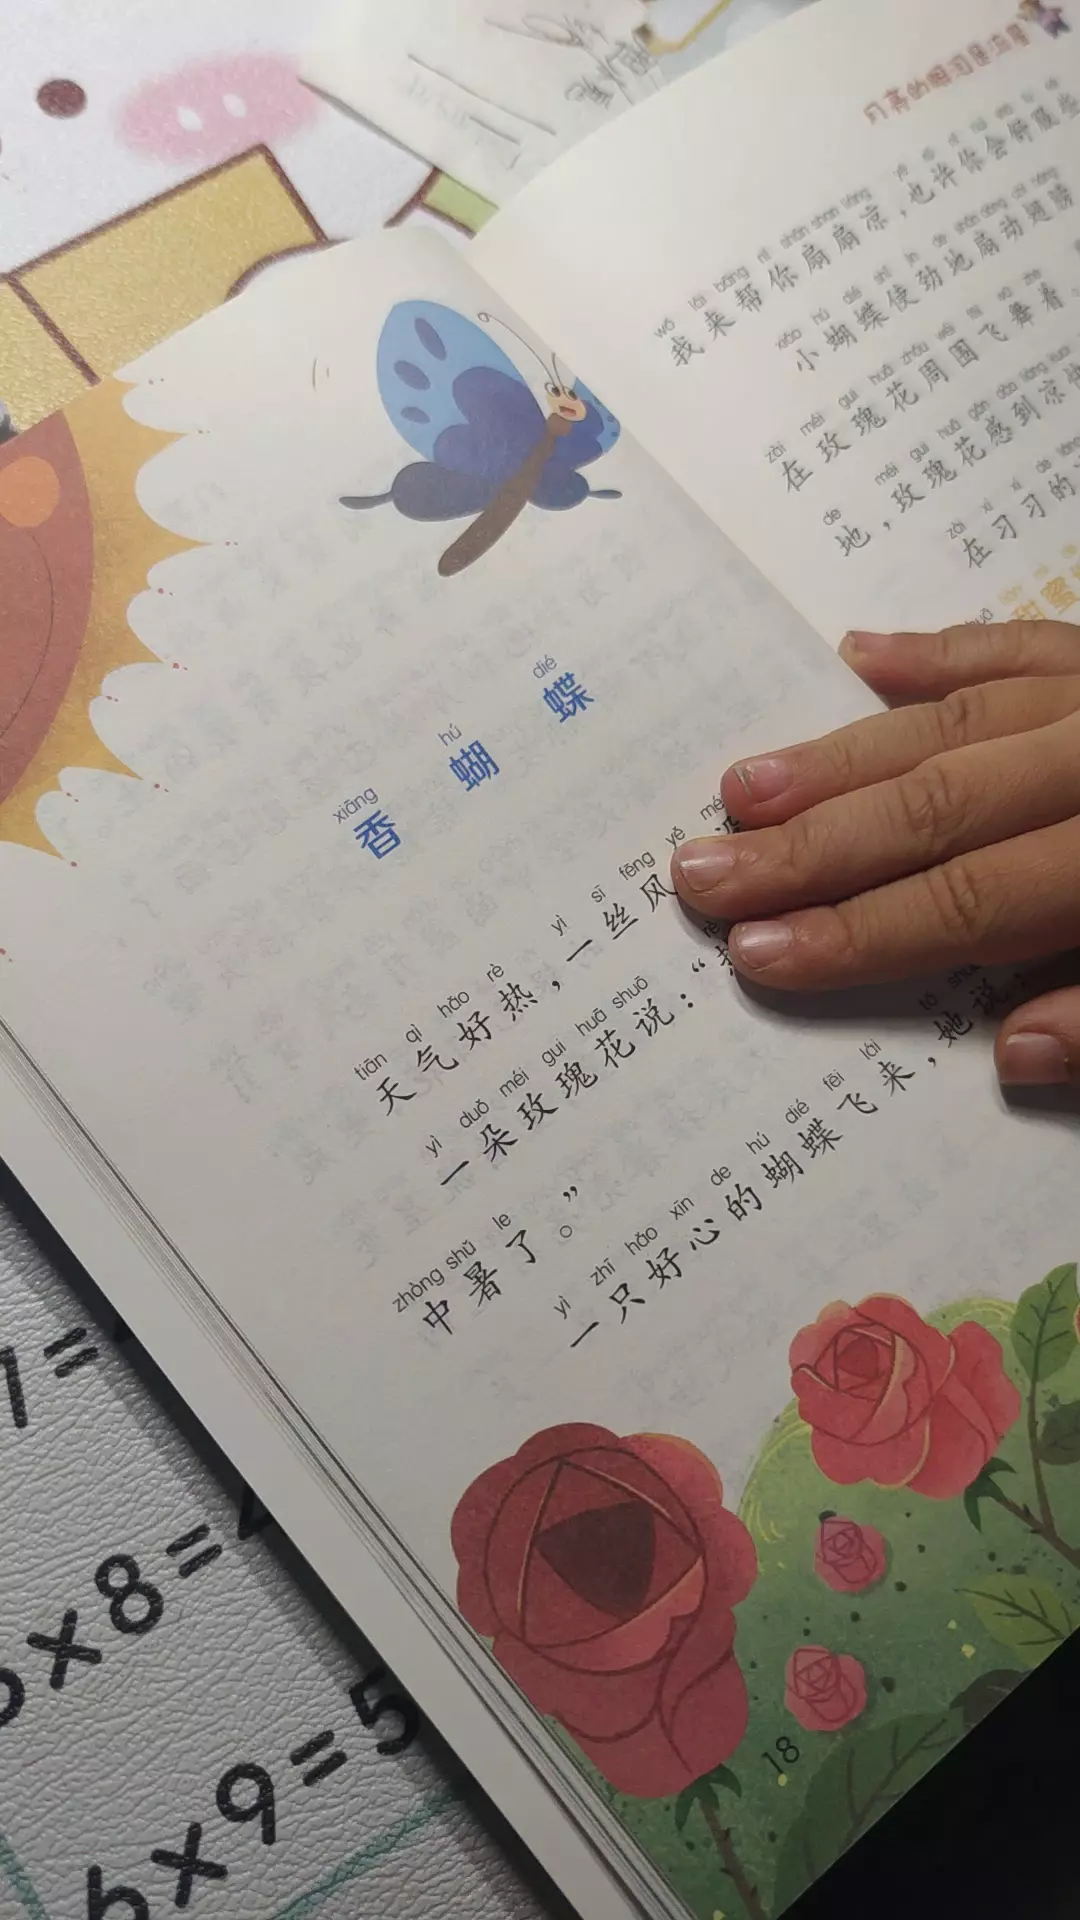 xiāng hú dié
香蝴蝶
tiān qì hǎo rè yì sī fēng yě méi
天气好热，一丝风
yì duǒ méi gui huā shuō rè
一朵玫瑰花说：“热
zhòng shǔ le
中暑了。”
yì zhī hǎo xīn de hú dié fēi lái tā shuō
一只好心的蝴蝶飞来，她说：
18
wǒ lái bāng nǐ shān shan liáng yě
我来帮你扇扇凉，也许你会舒服些
xiǎo hú dié shǐ jìn de shān dòng chì bǎng
小蝴蝶使劲地扇动翅膀
zài méi gui huā zhōu wéi fēi wǔ zhe
在玫瑰花周围飞舞着。
de méi gui huā gǎn dào liáng kuai
地，玫瑰花感到凉快
zài xí xí de liáng
在习习的
甜蜜
7=
×8=4
6×9=5